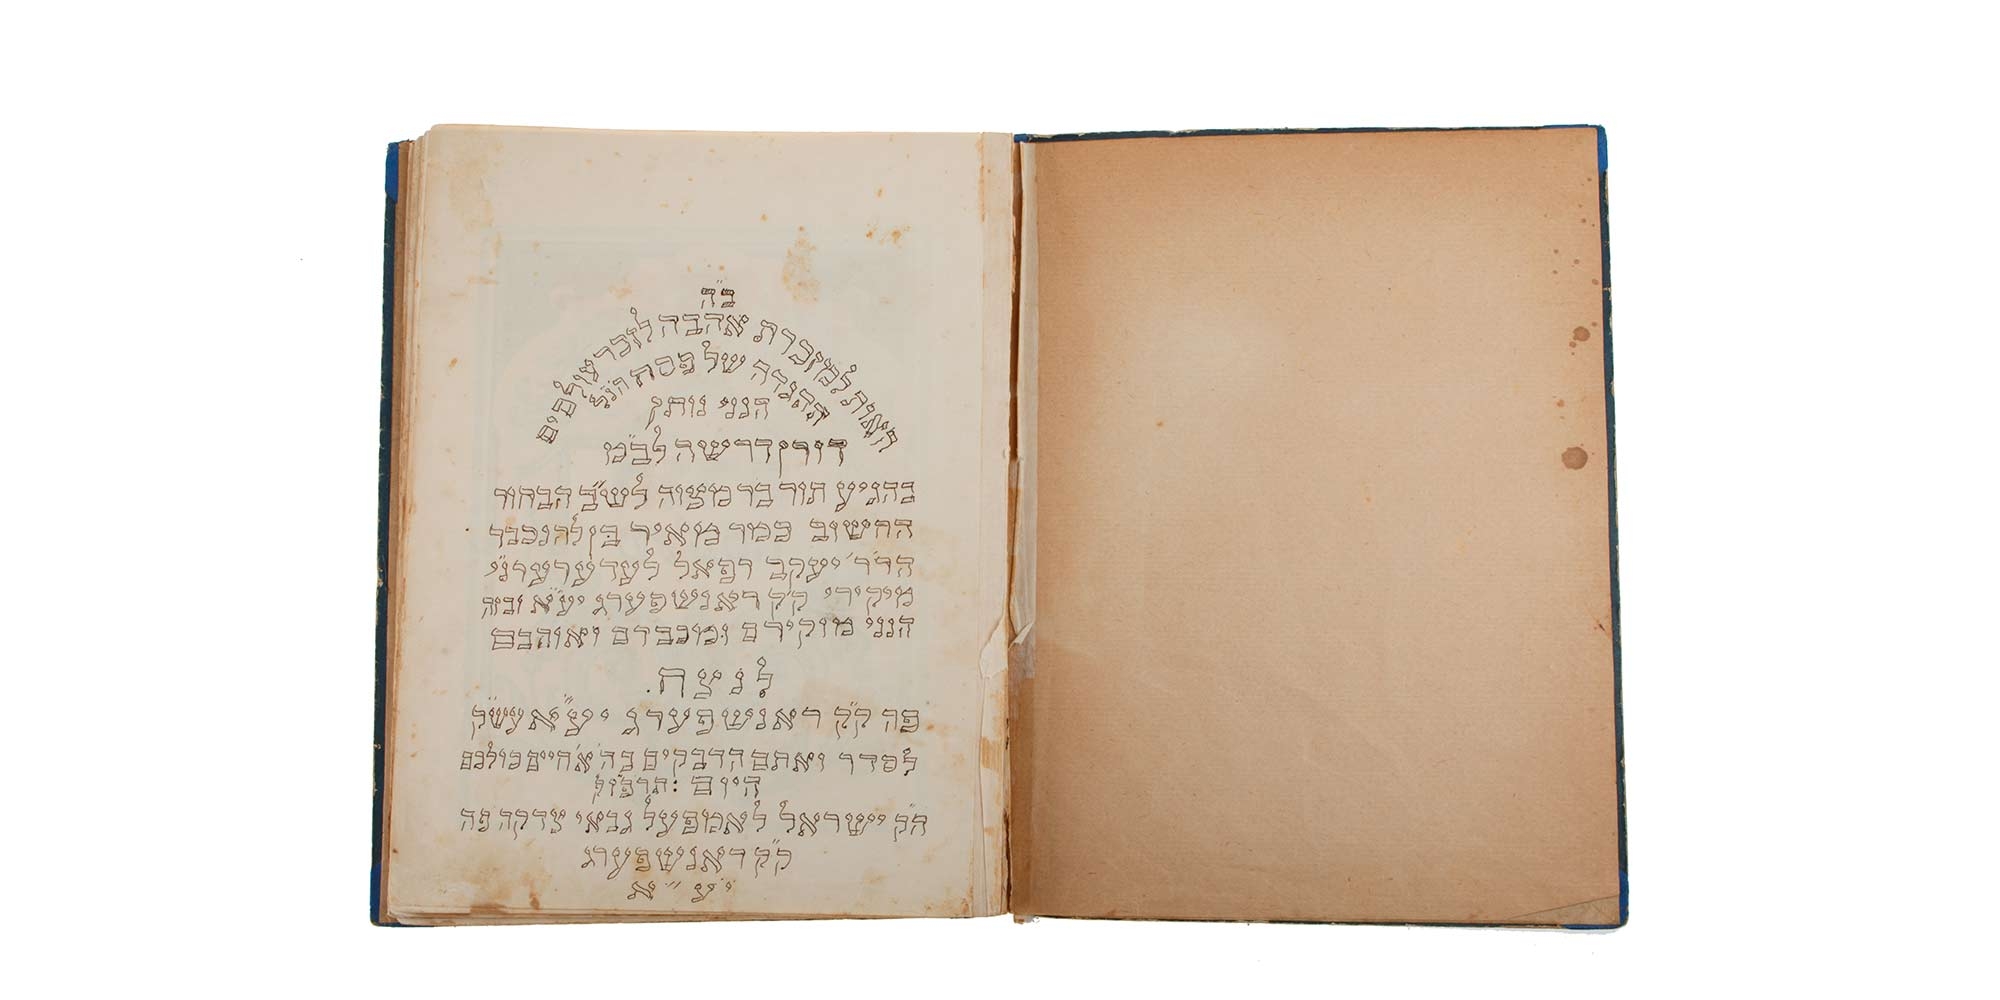 ב״ה
האות למזכרת אהבה לזכר עולמים
ההגדה של פסח הנ״ל
הנני נותן
דורן דרשה לב״מ
בהגיע תור בר מצוה לש״ב הבחור
החשוב כמר מאיר בן להנכבד
הר״ר יעקב רפאל לעדערער נ״י
מיקירי ק״ק ראנשפערג יע״א ובזה
הנני מוקירם ומכבדם ואוהבם
לנצח.
פה ק״ק ראנשפערג יע״א עש״ק
לסדר ואתם הדבקים בה׳ א׳ חיים כולכם
היום: תרפ״ז לק
הק׳ ישראל לאמפעל גבאי צדקה פה
ק״ק ראנשפערג
יע״א